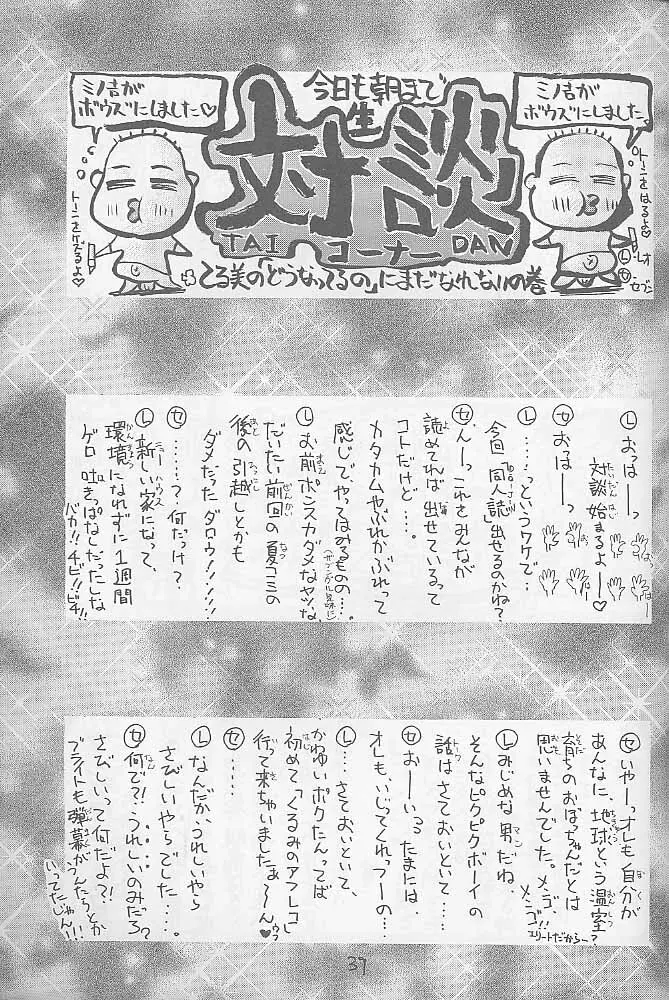 今日も朝まで
生
対談
TAI
コーナー
DAN
てる美の「どうなってるの」にまだなれないの巻
ミノ吉が
ボウズにしました。
トーンをはるよ
レオ
セブン
ミノ吉が
ボウズにしました♡
トーンをケズるよ♡
Ⓛおっはーっ
対談始まるよー♡
たいだんはじ
㋝おっはーっ
Ⓛ……っというワケで…
今回「同人誌」出せるのかね?
㋝んーっこれをみんなが
読めてれば出せているって
コトだけど…。
カタカムやぶれかぶれって
感じで、やってはみるものの…。
Ⓛお前ポンスカダメなヤツな、
だいたい前回の夏コミの
後の引越しとかも
ダメだったダロウ!!!!
㋝……?何だっけ?
Ⓛ新しい家になって、
ニューハウス
環境になれずに1週間
かんきょう
ゲロ吐きっぱなしだったしな
バカ!!チビ!!ビチ!!
㋝いやーっオレも自分が
あんなに、地球という温室
育ちのおぼっちゃんだとは
思いませんでした。メンゴ、
メンゴ!!
エリートだからー?
Ⓛみじめな男だね、
マン
そんなピクピクボーイの
話はさておいといて…
トウク
㋝おーいっ、たまには、
オレもいじってくれっつーの…
Ⓛ…さておいといて、
かわゆいボクたんってば
初めて「くるみのアフレコ」
行って来ちゃいましたぁ〜〜ん♡
ウフ
㋝……
Ⓛなんだか、うれしいやら
さびしいやらでした…。
㋝何で?!うれしいのみだろ?
さびしいって何だよ?!
ブライトも弾幕がうんたらとか
いってたじゃん!!
37